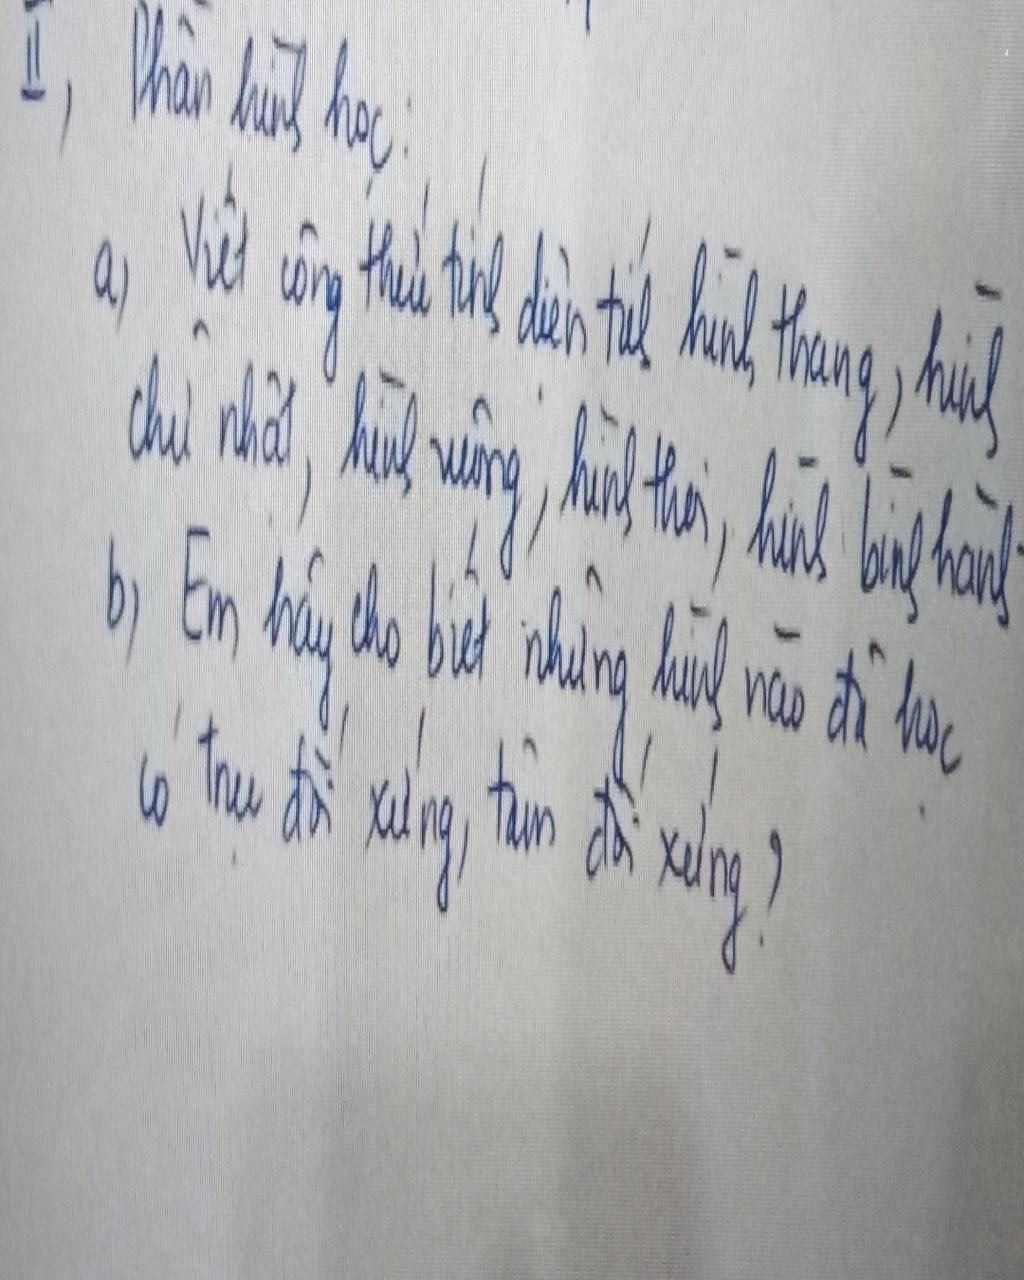 II, Phần hình học:
a) Viết công thức tính diện tích hình thang, hình
chữ nhật, hình vuông, hình thoi, hình bình hành
b) Em hãy cho biết những hình nào đã học
có trục đối xứng, tâm đối xứng?